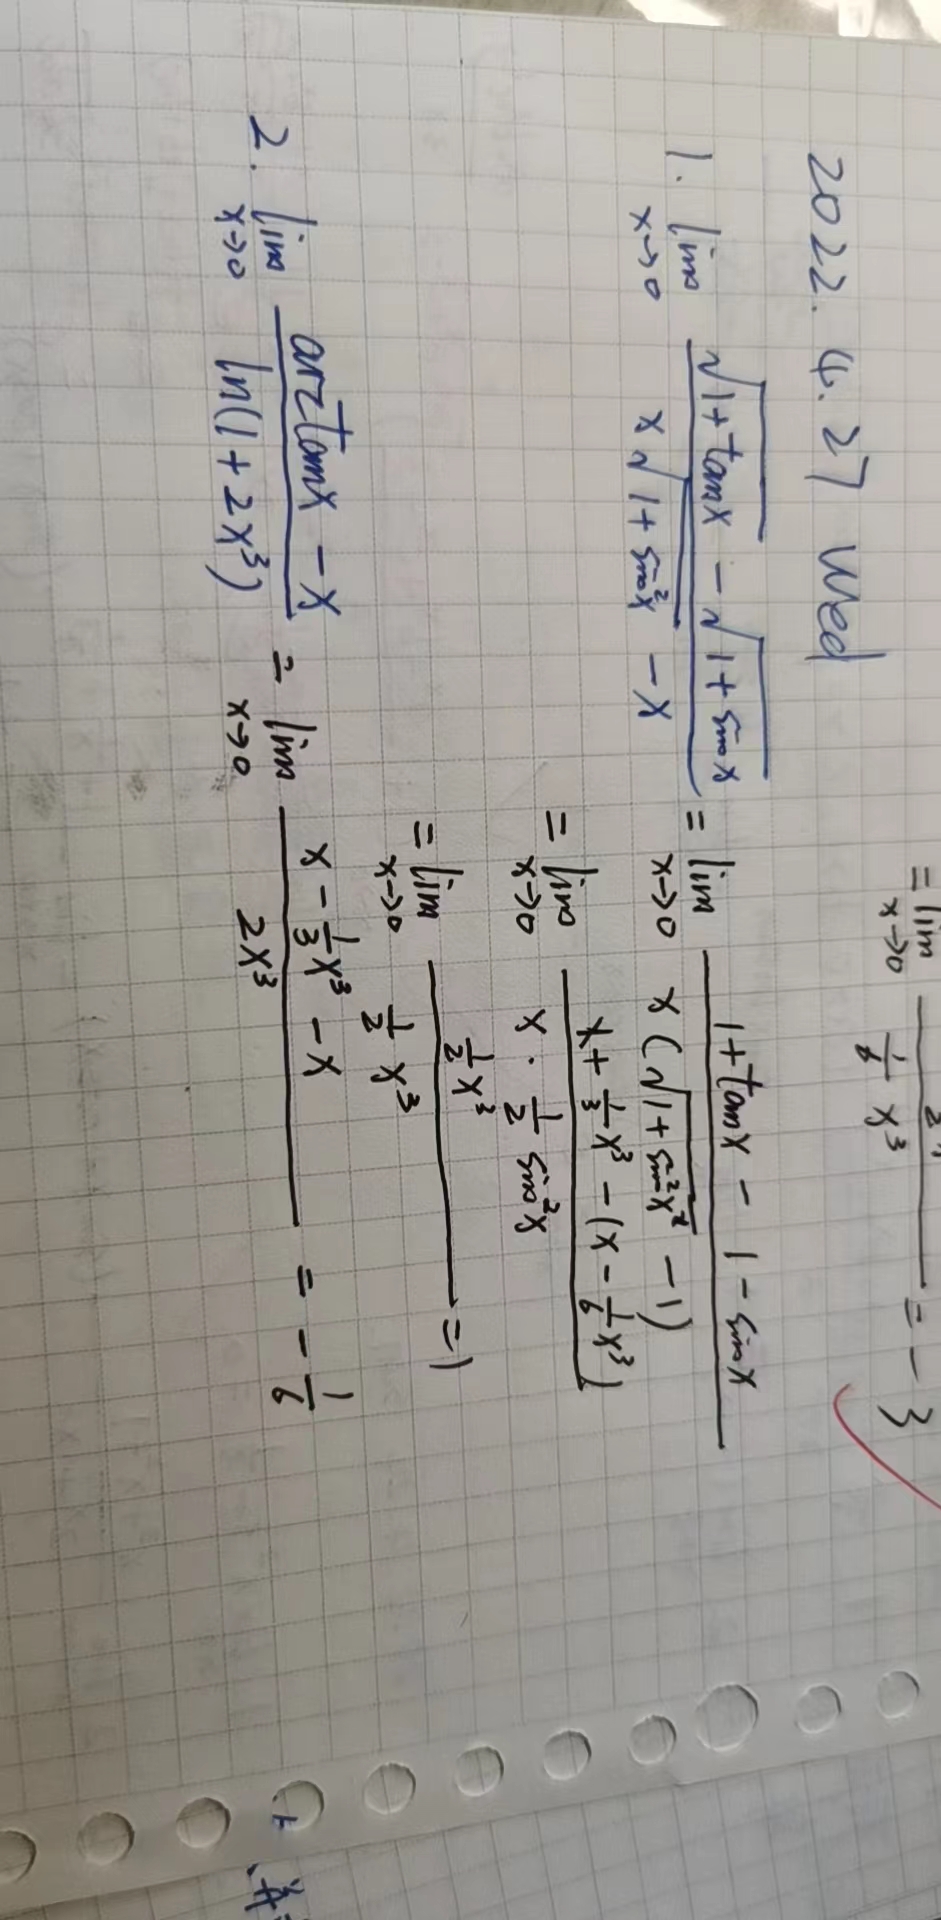 = lim x→0 / 1/6 x³ = -3
2022. 4. 27 Wed
1. lim x→0 (√(1+tanx) - √(1+sinx)) / (x√(1+sin²x) - x) = lim x→0 (1+tanx - 1 - sinx) / (x(√(1+sin²x²) - 1))
= lim x→0 (x + 1/3 x³ - (x - 1/6 x³)) / (x · 1/2 sin²x)
= lim x→0 (1/2 x³) / (1/2 x³) = 1
2. lim x→0 (arctanx - x) / (ln(1+2x³)) = lim x→0 (x - 1/3 x³ - x) / (2x³) = -1/6